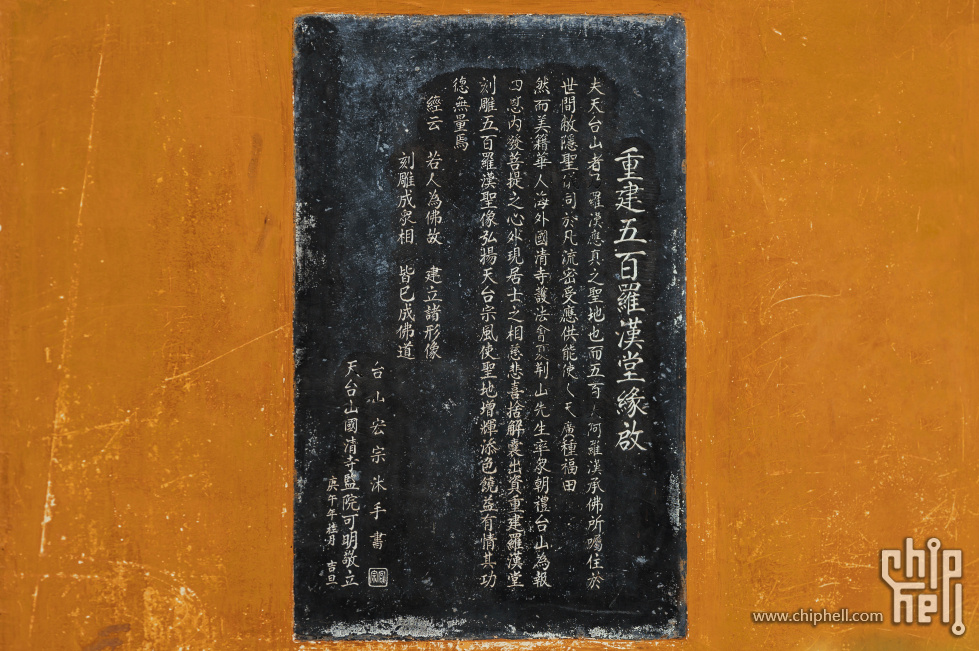 重建五百羅漢堂緣啟
夫天台山者 羅漢應真之聖地也而五百 阿羅漢承佛所囑住於
世間敝隱聖 同於凡流密受應供能使 天廣種福田
然而美籍華人海外國清寺護法會夏荆山先生率衆朝禮台山為報
四恩内發菩提之心外現居士之相慈悲喜捨解囊出資重建羅漢堂
刻雕五百羅漢聖像弘揚天台宗風使聖地增輝添色饒益有情其功
德無量焉
經云 若人為佛故 建立諸形像
刻雕成衆相 皆已成佛道
台山宏宗沐手書
天台山國清寺監院可明敬立
庚午年桂月 吉旦
www.chiphell.com
chip hell